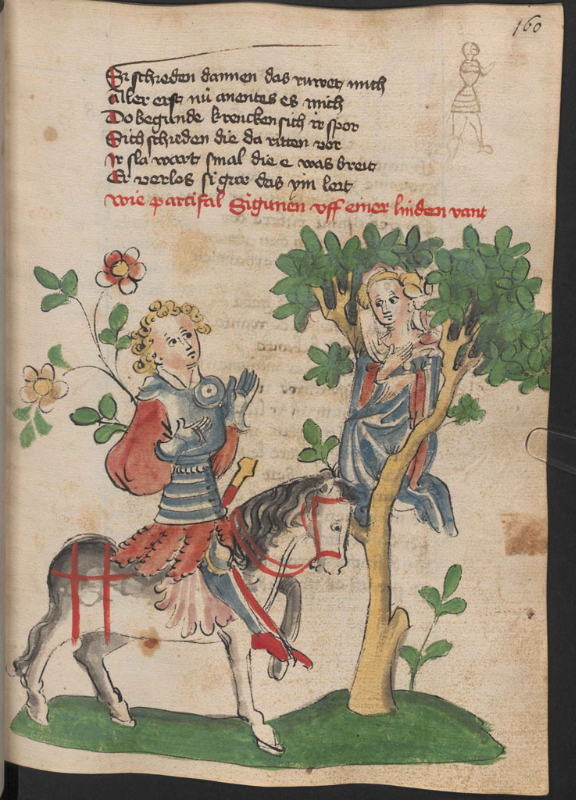 160
Si schieden dannen das ruwet mich
Aller erst nů anentes es mich
Do begunde krencken sich ir spor
Sich schieden die da ritten vor
Ir sla wart smal die e was breit
Er verlos si gar das ym leit
wie partifal Sigunen vff einer linden vant